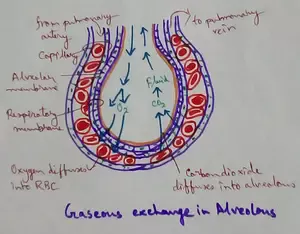 from pulmonary
artery
to pulmonary
vein
Capillary
Alveolar
membrane
Fluid
Respiratory
membrane
O2
CO2
Oxygen diffuses
into RBC
Carbondioxide
diffuses into alveolous
Gaseous exchange in Alveolous